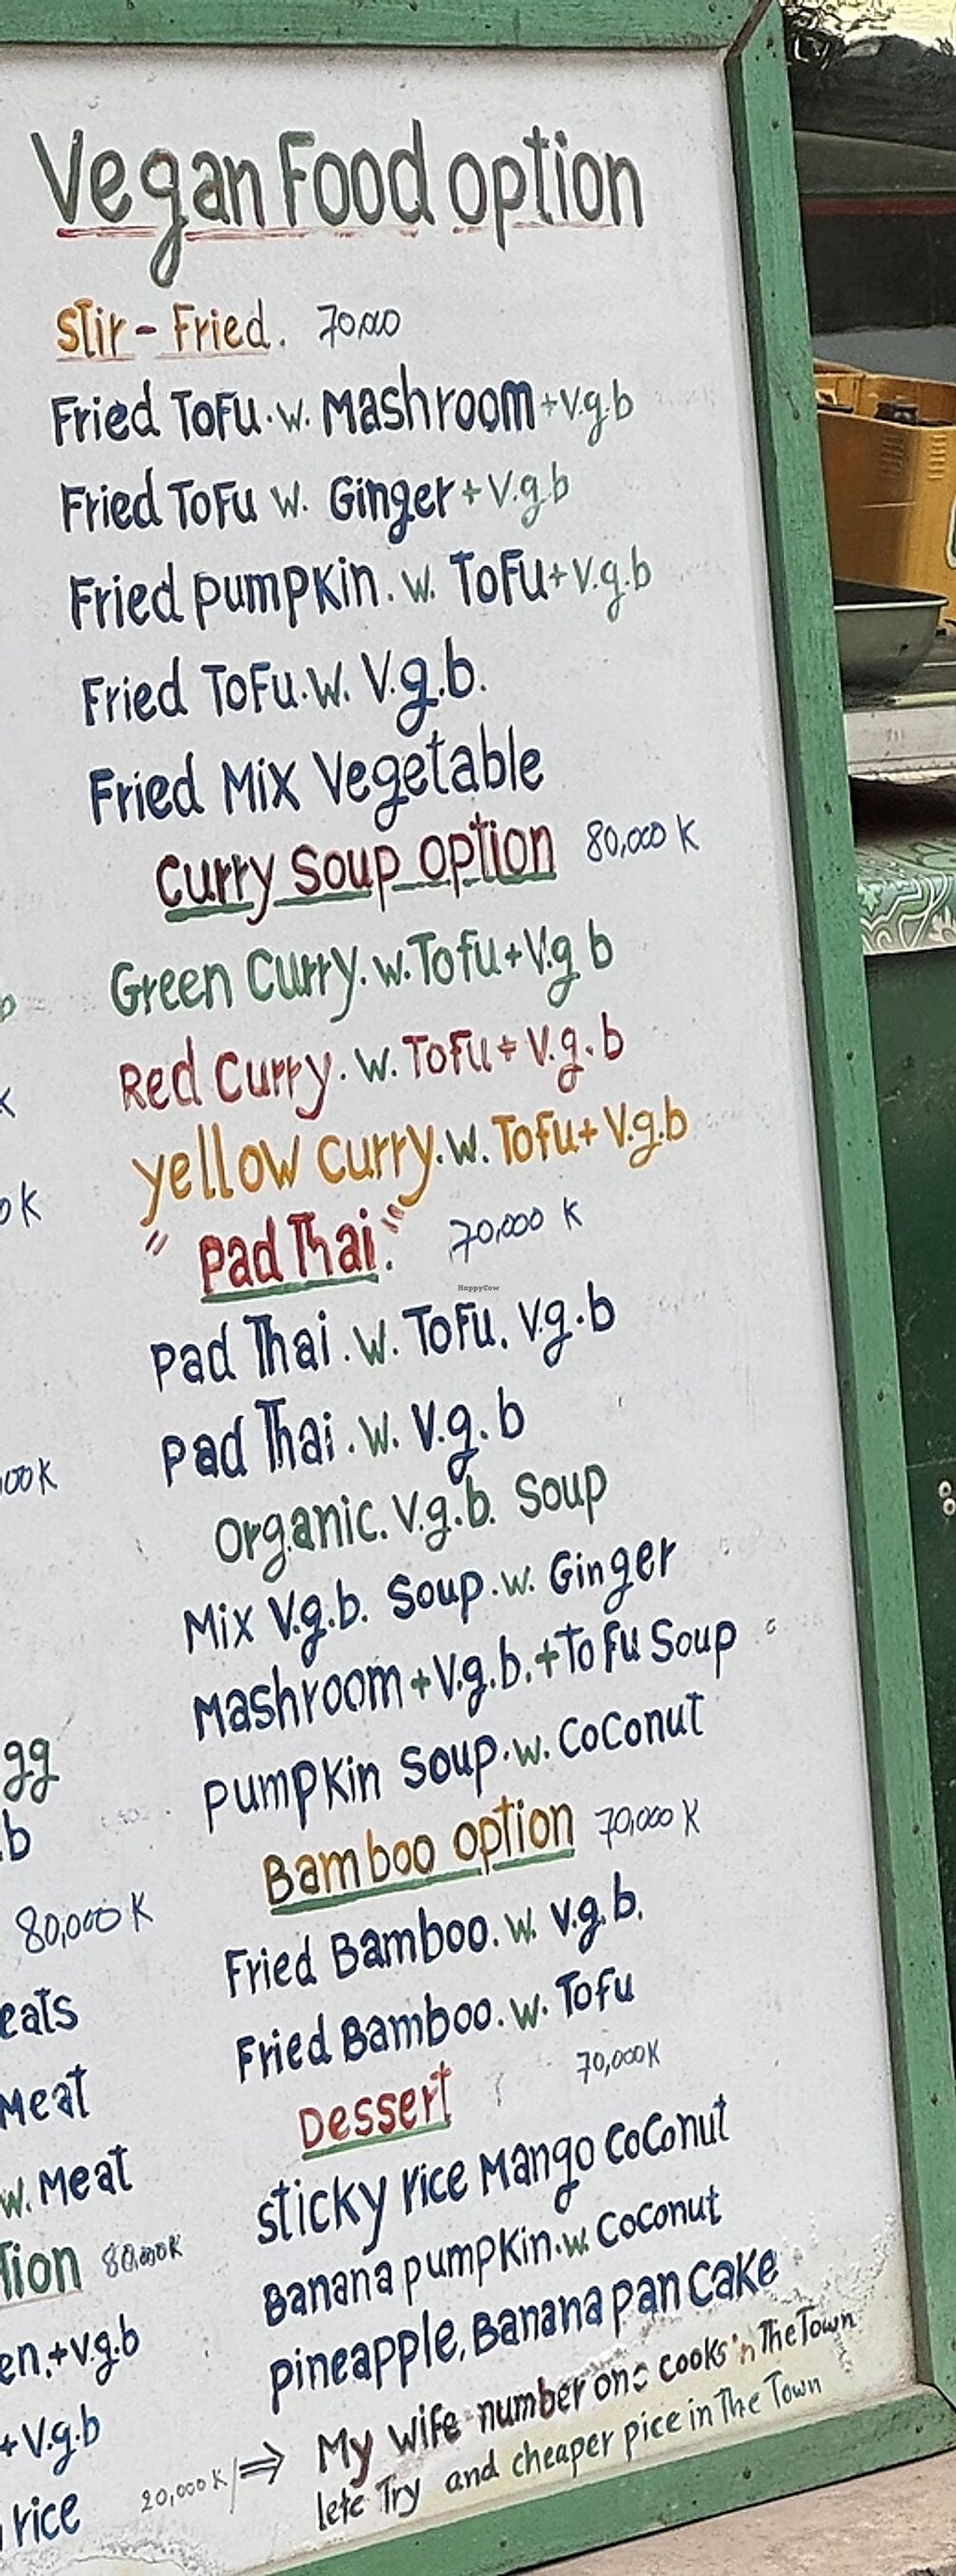 Vegan Food option
Stir-Fried. 70,000
Fried ToFu.w. Mashroom+v.g.b
Fried ToFu w. Ginger+v.g.b
Fried pumpkin.w. ToFu+v.g.b
Fried ToFu.w. V.g.b.
Fried Mix Vegetable
Curry Soup option 80,000 K
Green Curry.w.Tofu+V.g b
Red Curry.w.ToFu+V.g.b
yellow curry.w.Tofu+V.g.b
"Pad Thai." 70,000 K
HappyCow
Pad Thai.w.ToFu.v.g.b
Pad Thai.w.V.g.b
00K
Organic.v.g.b. Soup
Mix V.g.b. Soup.w. Ginger
Mashroom+V.g.b.+ToFu Soup
gg
pumpkin Soup.w.CoConut
.b
Bamboo option 70,000 K
80,000 K
Fried Bamboo.w.v.g.b.
eats
Fried Bamboo.w.Tofu
70,000K
Meat
Dessert
w.Meat
Sticky rice Mango CoConut
tion 80,000K
Banana pumpkin.w.CoConut
en.+v.g.b
pineapple,Banana pan Cake
+V.g.b
20,000K ⇒ My wife number one cooks 'n The Town
rice
lete Try and cheaper pice in The Town